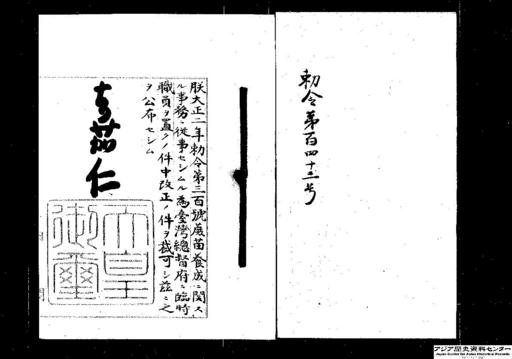 勅令第百四十三号
朕大正二年勅令第三百號蔗苗養成ニ關ス
ル事務ニ從事セシムル爲臺灣總督府ニ臨時
職員ヲ置クノ件中改正ノ件ヲ裁可シ茲ニ之
ヲ公布セシム
嘉仁
天皇
御璽
アジア歴史資料センター
Japan Center for Asian Historical Records